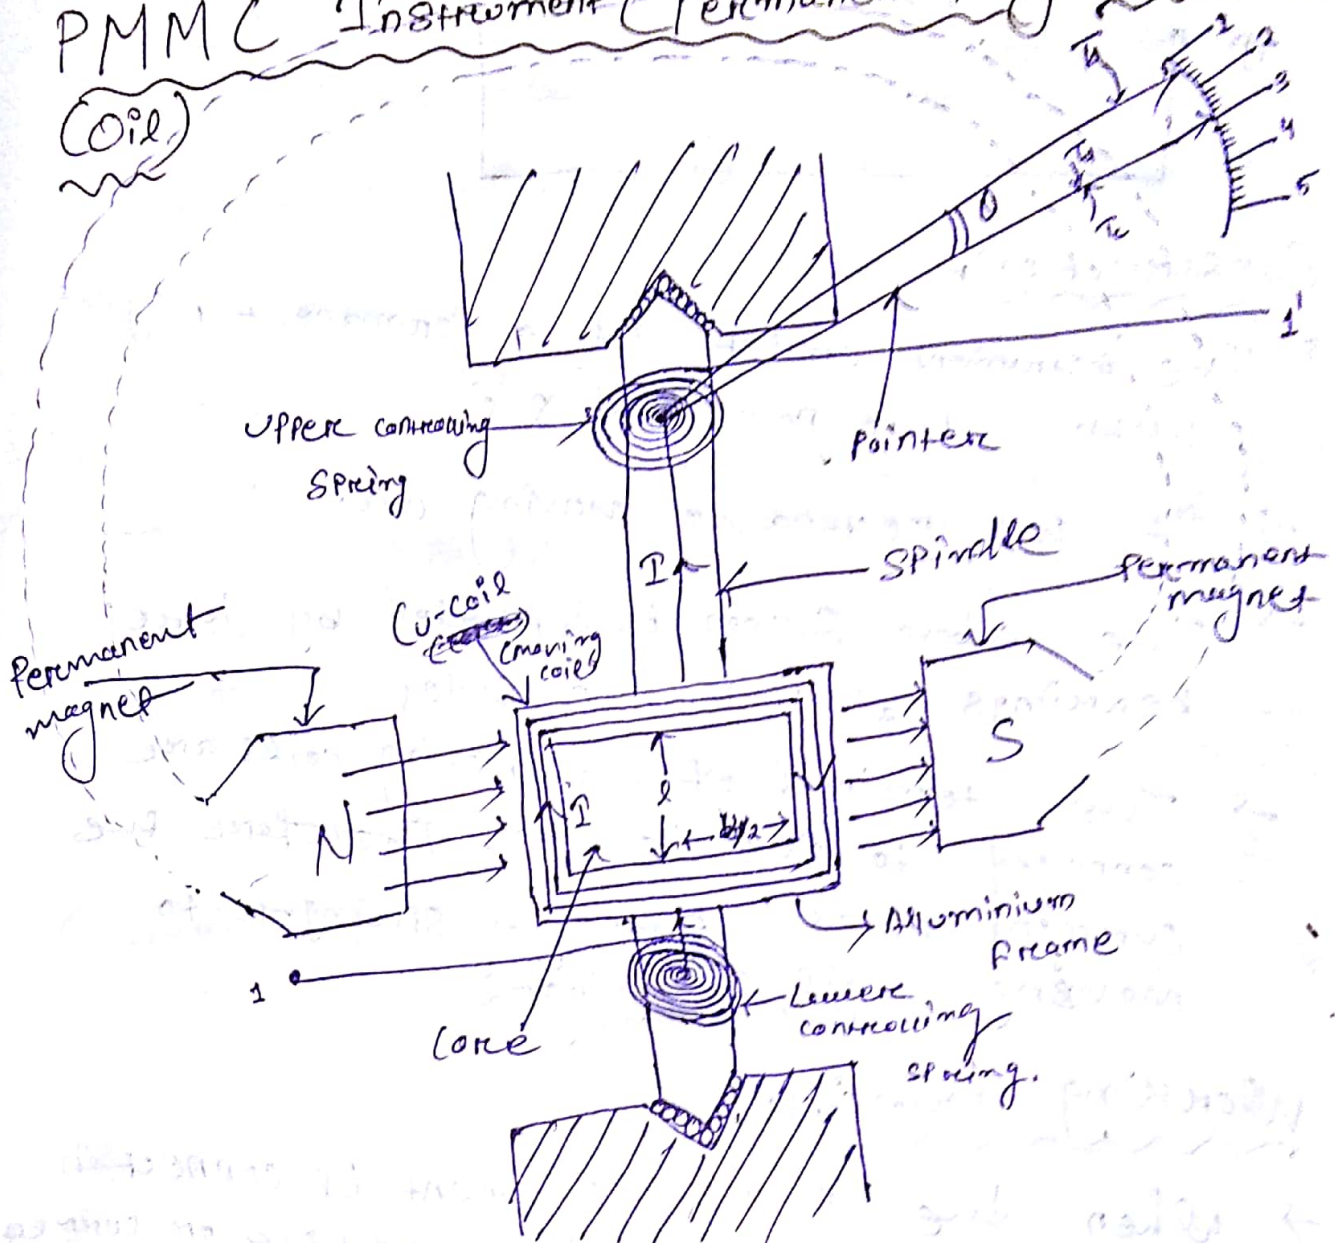 PMMC Instrument (Perman
Coil)
1
2
3
4
5
θ
1'
Upper controlling
Spring
Pointer
I
Spindle
Permanent
magnet
Cu-coil
(moving
coil)
Permanent
magnet
N
S
I
l
b/2
Alluminium
Frame
1
Lower
controlling
spring.
Core